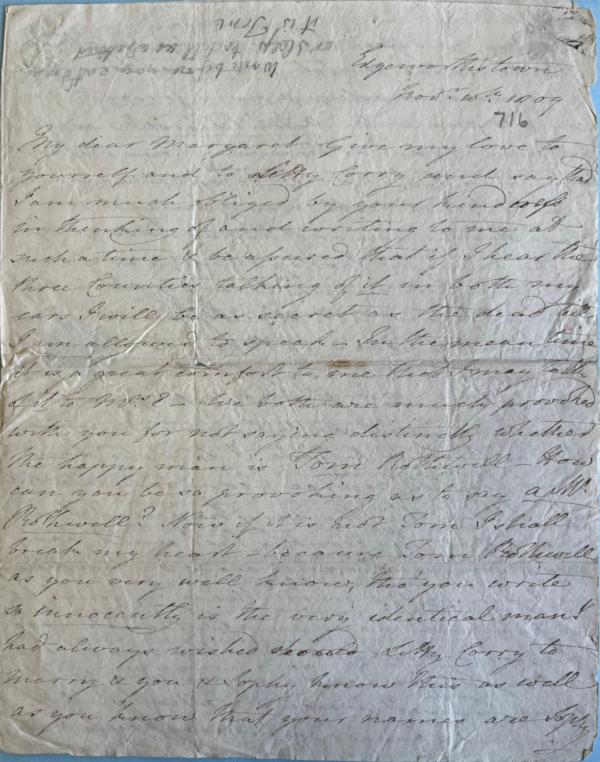 Write before you eat drink
or sleep to tell us whether
it is Tom
Edgeworthstown
Novr 18th 1809
716
My dear Margaret Give my love to
yourself and to Letty Corry and say that
I am much obliged by your kindness
in thinking of and writing to me at
such a time & be assured that if I hear the
three Counties talking of it in both my
ears I will be as secret as the dead till
I am allowed to speak – In the mean time
it is a great comfort to me that I may talk
of it to Mrs E – We both are much provoked
with you for not saying distinctly whether
the happy man is Tom Rothwell – How
can you be so provoking as to say a Mr
Rothwell? Now if it is not Tom I shall
break my heart – because Tom Rothwell
as you very well know, tho' you write
so innocently is the very identical man I
had always wished Letty Corry to
marry & you & Sophy know this as well
as you know that your names are Sophy